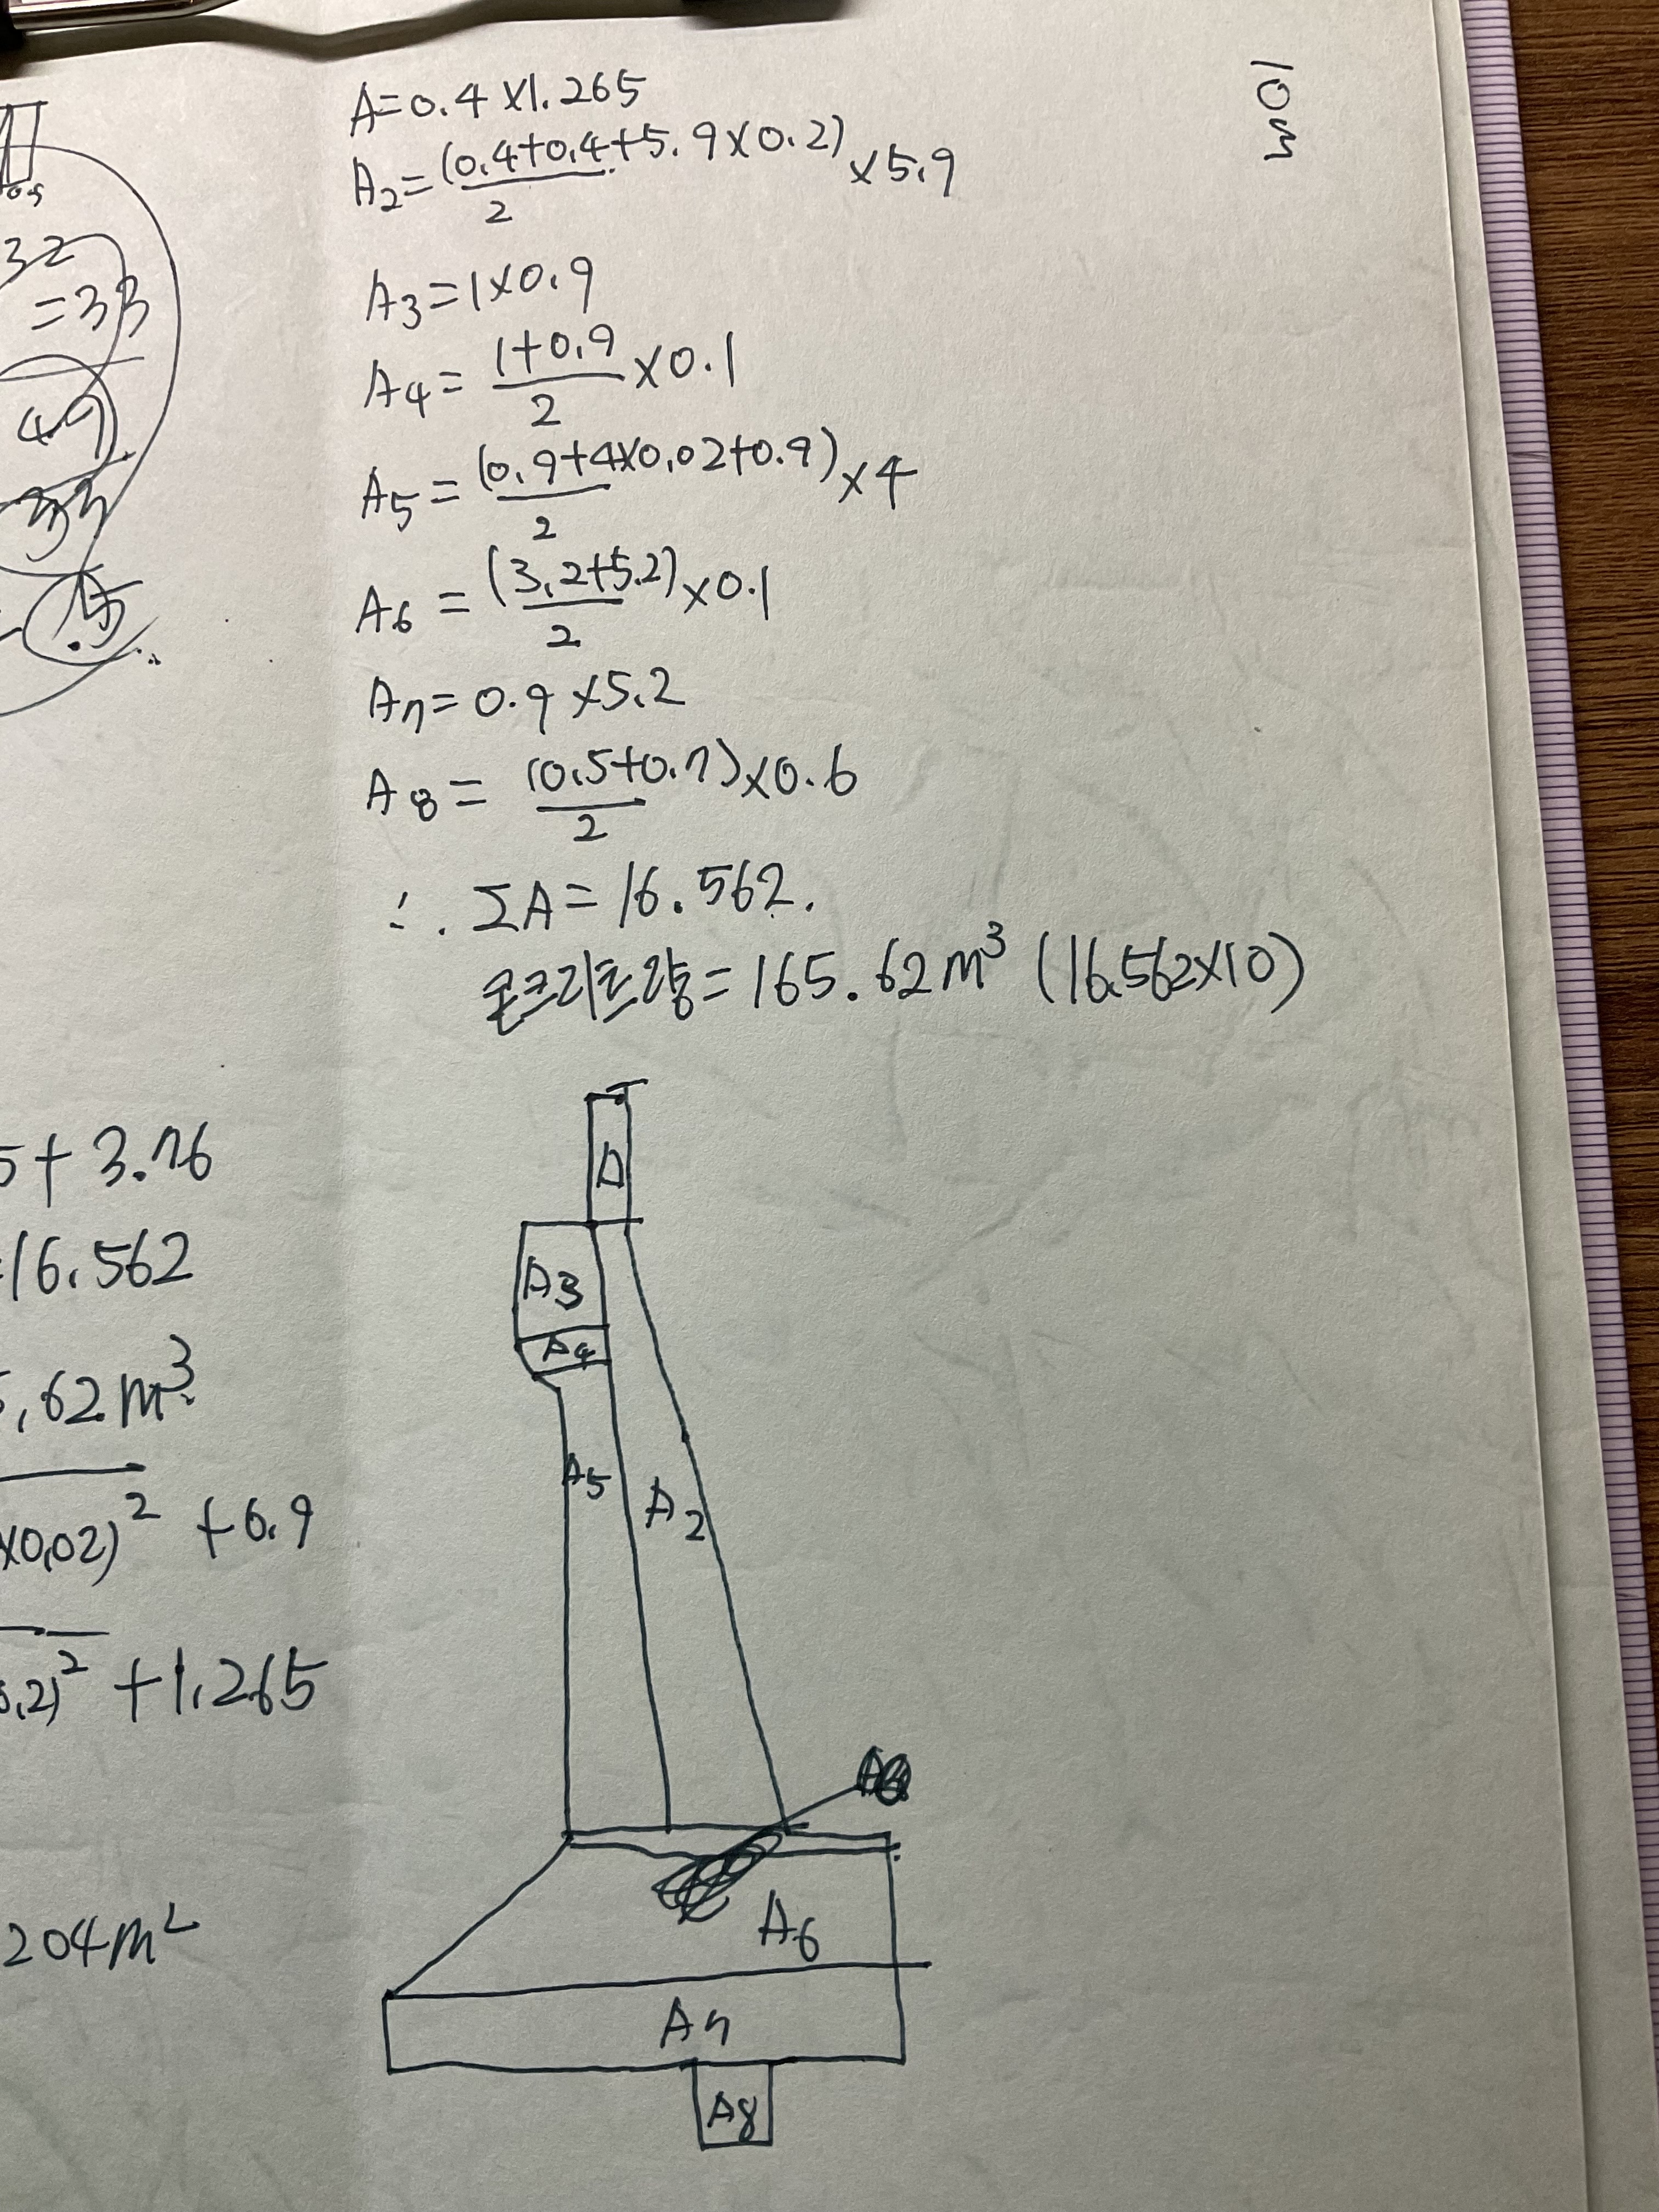 10m
A=0.4×1.265
A2=(0.4+0.4+5.9×0.2)/2 ×5.9
A3=1×0.9
A4=(1+0.9)/2 ×0.1
A5=(0.9+4×0.02+0.9)/2 ×4
A6=(3.2+5.2)/2 ×0.1
A7=0.9×5.2
A8=(0.5+0.7)/2 ×0.6
∴ ΣA=16.562.
콘크리트량=165.62m³ (16.562×10)
32
=33
49
5+3.76
=16.562
,62m³
×0.02)² +6.9
.2)² +1.265
204m²
A
A3
A4
A5
A2
A6
A7
A8